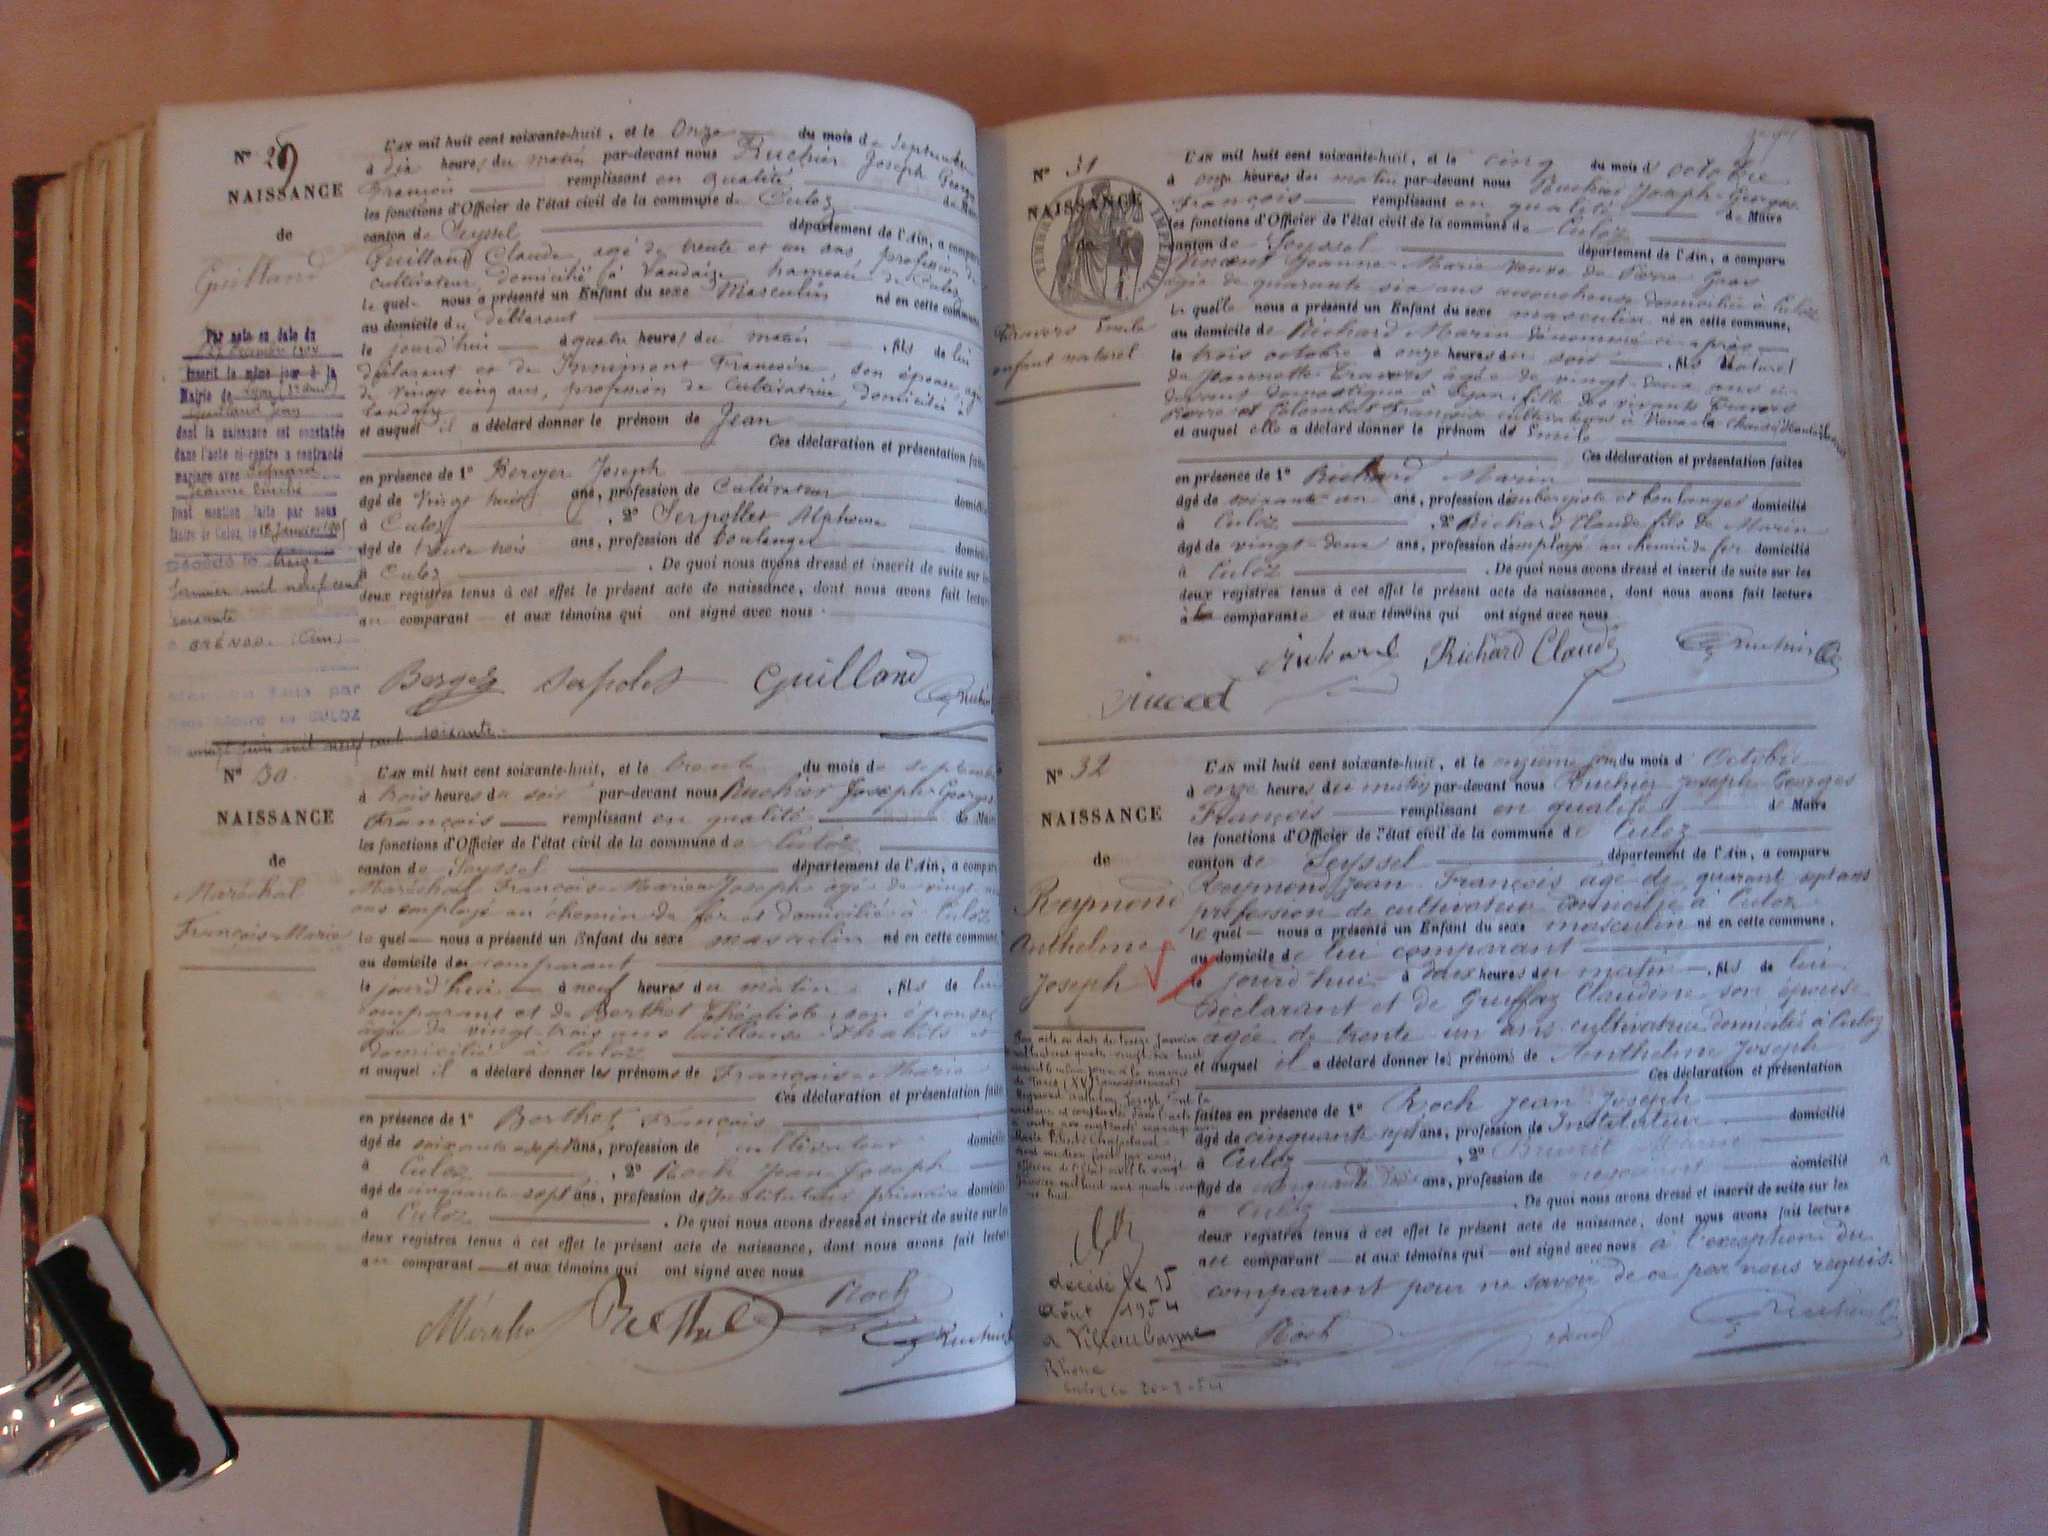 N° 29
NAISSANCE
de
Guilland
Par acte en date du
inscrit le même jour à la
Mairie de Lyon
Guilland Jean
dont la naissance est constatée
dans l'acte ci-contre a contracté
mariage avec
Jeanne
Dont mention faite par nous
Maire de Culoz, le 18 Janvier
Décédé le treize
mil neuf cent
soixante
à BRÉNOD (Ain)
Mention faite par
nous Maire de CULOZ
juin mil neuf cent soixante.
L'AN mil huit cent soixante-huit, et le Onze du mois de Septembre
à dix heures du matin par-devant nous Ruchier Joseph Georges
François remplissant en qualité de Maire
les fonctions d'Officier de l'état civil de la commune de Culoz
canton de Seyssel département de l'Ain, a comparu
Guilland Claude, agé de trente et un ans, profession de
cultivateur, domicilié à Landaize, hameau de Culoz
le quel nous a présenté un Enfant du sexe Masculin né en cette commune,
au domicile du déclarant
le jourd'hui à quatre heures du matin, fils de lui
déclarant et de Françoise, son épouse, agée
de vingt cinq ans, profession de Cultivatrice, domiciliée à
Landaize
et auquel il a déclaré donner le prénom de Jean
Ces déclaration et présentation faites
en présence de 1° Berger Joseph
âgé de vingt huit ans, profession de Cultivateur domicilié
à Culoz, 2° Serpollet Alphonse
âgé de trente trois ans, profession de Boulanger domicilié
à Culoz. De quoi nous avons dressé et inscrit de suite sur les
deux registres tenus à cet effet le présent acte de naissance, dont nous avons fait lecture
au comparant et aux témoins qui ont signé avec nous.
Berger Guilland
N° 30
NAISSANCE
de
Maréchal
François-Marie
L'AN mil huit cent soixante-huit, et le trente du mois de septembre
à trois heures du soir par-devant nous Ruchier Joseph-Georges
François remplissant en qualité de Maire
les fonctions d'Officier de l'état civil de la commune de Culoz
canton de Seyssel département de l'Ain, a comparu
Maréchal François-Marie-Joseph agé de vingt
ans employé au chemin de fer et domicilié à Culoz
le quel nous a présenté un Enfant du sexe masculin né en cette commune,
au domicile du comparant
le jourd'hui à neuf heures du matin, fils de lui
comparant et de Berthet son épouse
âgée de vingt-trois ans tailleuse d'habits et
domicilié à Culoz
et auquel il a déclaré donner les prénoms de François-Marie
Ces déclaration et présentation faites
en présence de 1° Berthet François
âgé de soixante-sept ans, profession de cultivateur domicilié
à Culoz, 2° Roch Jean-Joseph
âgé de cinquante-sept ans, profession d'Instituteur primaire domicilié
à Culoz. De quoi nous avons dressé et inscrit de suite sur les
deux registres tenus à cet effet le présent acte de naissance, dont nous avons fait lecture
au comparant et aux témoins qui ont signé avec nous
Roch
N° 31
NAISSANCE
TIMBRE IMPÉRIAL
Travers Emile
enfant naturel
L'AN mil huit cent soixante-huit, et le cinq du mois d'octobre
à onze heures du matin par-devant nous Ruchier Joseph-Georges-
François remplissant en qualité de Maire
les fonctions d'Officier de l'état civil de la commune de Culoz
canton de Seyssel département de l'Ain, a comparu
Vincent Jeanne-Marie veuve de Pierre
agée de quarante six ans accoucheuse domiciliée à Culoz
le quelle nous a présenté un Enfant du sexe masculin né en cette commune,
au domicile de Richard Marin dénommé ci-après
le trois octobre à onze heures du soir, fils naturel
de Jeannette Travers âgée de vingt-deux ans ci-
devant domestique à Lyon, fille des vivants Travers
Pierre et Colombet Françoise cultivateurs à
et auquel elle a déclaré donner le prénom de Emile
Ces déclaration et présentation faites
en présence de 1° Richard Marin
âgé de soixante-un ans, profession d'aubergiste et boulanger domicilié
à Culoz, 2° Richard Claude fils de Marin
âgé de vingt-deux ans, profession d'employé au chemin de fer domicilié
à Culoz. De quoi nous avons dressé et inscrit de suite sur les
deux registres tenus à cet effet le présent acte de naissance, dont nous avons fait lecture
à la comparante et aux témoins qui ont signé avec nous
Richard Richard Claude
N° 32
NAISSANCE
de
Reymond
Anthelme
Joseph
L'AN mil huit cent soixante-huit, et le onzième jour du mois d'Octobre
à onze heures du matin par-devant nous Ruchier Joseph Georges
François remplissant en qualité de Maire
les fonctions d'Officier de l'état civil de la commune de Culoz
canton de Seyssel département de l'Ain, a comparu
Reymond Jean François agé de quarant sept ans
profession de cultivateur domicilié à Culoz
le quel nous a présenté un Enfant du sexe masculin né en cette commune,
au domicile de lui comparant
le jourd'hui à deux heures du matin, fils de lui
déclarant et de Gruffaz Claudine son épouse
agée de trente un ans cultivatrice domiciliée à Culoz
et auquel il a déclaré donner les prénoms de Anthelme Joseph
Ces déclaration et présentation
faites en présence de 1° Roch Jean Joseph
âgé de cinquante sept ans, profession d'Instituteur domicilié
à Culoz, 2°
âgé de cinquante ans, profession de domicilié
à Culoz. De quoi nous avons dressé et inscrit de suite sur les
deux registres tenus à cet effet le présent acte de naissance, dont nous avons fait lecture
au comparant et aux témoins qui ont signé avec nous à l'exception du
comparant pour ne savoir de ce par nous requis.
Roch
décédé le 15
Août 1954
à Villeurbanne
Rhône